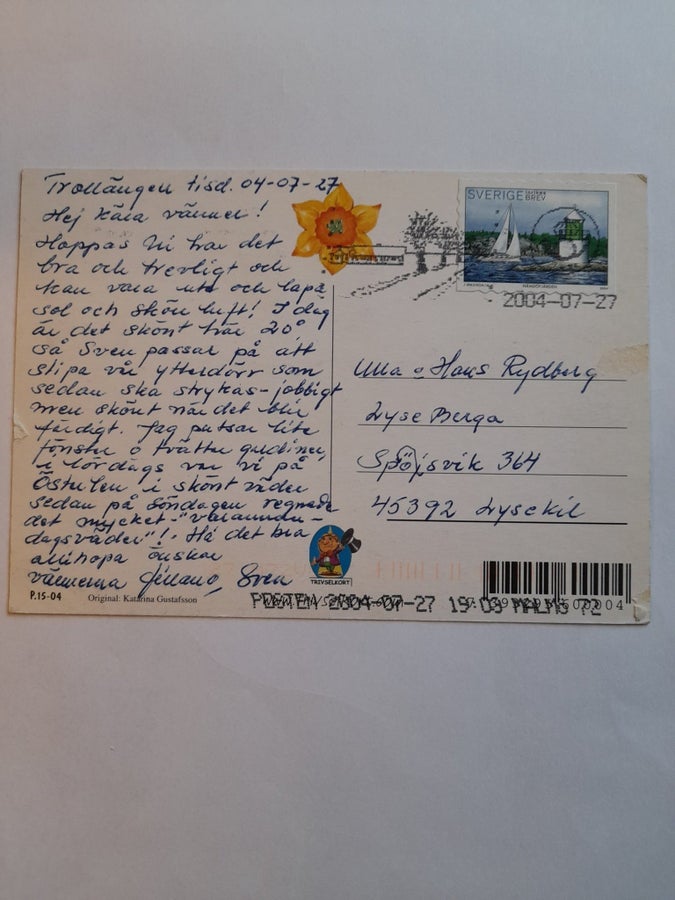 Trollängen tisd. 04-07-27
Hej kära vänner!
Hoppas Ni har det
bra och trevligt och
kan vara ute och lapa
sol och skön luft! I dag
är det skönt här 20°,
så Sven passar på att
slipa vår ytterdörr som
sedan ska strykas-jobbigt
men skönt när det blir
färdigt. Jag putsar lite
fönster o tvättar gardiner,
i lördags var vi på
Östulen i skönt väder
sedan på söndagen regnade
det mycket-"varannan-
dagsväder"! Ha det bra
allihopa önskar
vännerna Sven
P.15-04
Original: Katarina Gustafsson
TRIVSELKORT
SVERIGE
BREV
2004-07-27
Ulla o Hans Rydberg
Lyse Berga
Spöjsvik 364
45392 Lysekil
POSTEN 2004-07-27 19:03 MALMÖ 72